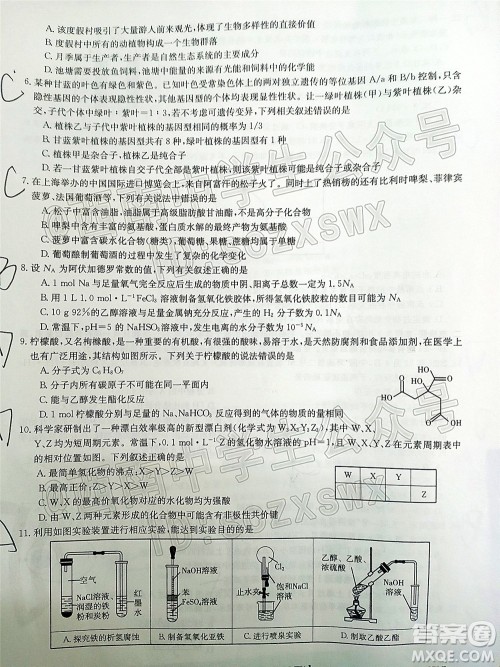 A. 该度假村吸引了大量游人前来观光，体现了生物多样性的直接价值
B. 度假村中的所有动植物构成一个生物群落
C. 月季属于生产者，生产者是自然生态系统的主要成分
D. 池塘需要投放鱼饲料，池塘中能量的来源有光能和饲料中的化学能
6. 某种甘蓝的叶色有绿色和紫色。已知叶色受常染色体上的两对独立遗传的等位基因 A/a 和 B/b 控制，只含
隐性基因的个体表现隐性性状，其他基因型的个体均表现显性性状。让一绿叶植株(甲)与紫叶植株(乙)杂
交，子代个体中绿叶∶紫叶=1∶3，若不考虑可遗传的变异，下列相关叙述错误的是
A. 植株乙与子代中紫叶植株的基因型相同的概率为 1/3
B. 甘蓝植株中紫叶植株的基因型有 8 种，绿叶植株的基因型有 1 种
C. 植株甲是纯合子，植株乙是纯合子
D. 若一紫叶甘蓝植株自交子代全部是紫叶植株，则该植株可能是杂合子
7. 在上海举办的中国国际进口博览会上，来自阿富汗的松子火了，同时上了热销榜的还有比利时啤梨、菲律宾
菠萝、法国葡萄酒等，下列有关说法错误的是
A. 松子中富含油脂，油脂属于高级脂肪酸甘油酯，属于高分子化合物
B. 啤梨中含有丰富的氨基酸，蛋白质水解的最终产物为氨基酸
C. 菠萝中富含碳水化合物(糖类)，葡萄糖、果糖、蔗糖、淀粉等都属于糖类
D. 葡萄酿制葡萄酒的过程中发生了复杂的化学变化
8. 设 NA 为阿伏加德罗常数的值，下列有关叙述正确的是
B. 用 1 L 1.0 mol·L⁻¹FeCl₃ 溶液制备氢氧化铁胶体，氢氧化铁胶粒的数目为 NA
C. 10 g 92%的乙醇溶液与足量的钠反应，产生的氢分子数目为 0.1NA
9. 柠檬酸，又名枸橼酸，是一种重要的有机酸，有很强的酸味，易溶于水，是天然防腐剂和食品添加剂，在医学上
也有广泛用途，其结构如图。下列关于柠檬酸的说法错误的是
A. 分子式为 C₆H₈O₇
C. 能与乙醇发生酯化反应
D. 1 mol 柠檬酸分别与足量的 Na、NaHCO₃ 反应得到的气体的物质的量相同
10. 科学家研制出了一种漂白效率极高的新型漂白剂(化学式为 WXY₂Z₂)，结构如图所示，其中 W、X、
Y、Z 均为短周期元素。常温下，0.1 mol·L⁻¹ Z 的氢化物水溶液的 pH=1，且它们在元素周期表中的相
对位置如图。下列叙述正确的是
W X Y
Z
A. 最简单氢化物的沸点：X>Y>Z>W
B. 最高化合价：Z>Y>X>W
C. W、X 的最高价氧化物对应的水化物均为强酸
D. W、X、Y、Z 形成的化合物中可能含有离子键和共价键
11. 利用如图实验装置进行相应实验，能达到实验目的的是
空气
NaCl溶液、
润湿的铁
粉和炭粉
红墨水
A. 探究铁的析氢腐蚀
NaOH溶液
苯
FeSO₄
溶液
B. 制备氢氧化亚铁
Cl₂
止水夹
饱和NaCl
溶液
C. 进行喷泉实验
乙醇、乙酸、
浓硫酸
NaOH
溶液
D. 制取乙酸乙酯